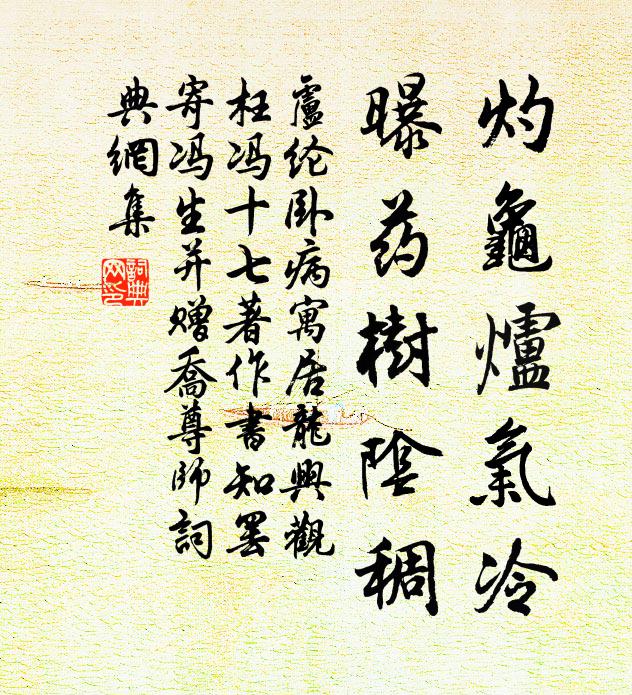 灼龜爐氣冷
曝药樹陰稠
盧纶卧病寓居龍興觀
枉冯十七著作書知罢
寄冯生并赠喬尊师詞
典網集
詞典网印